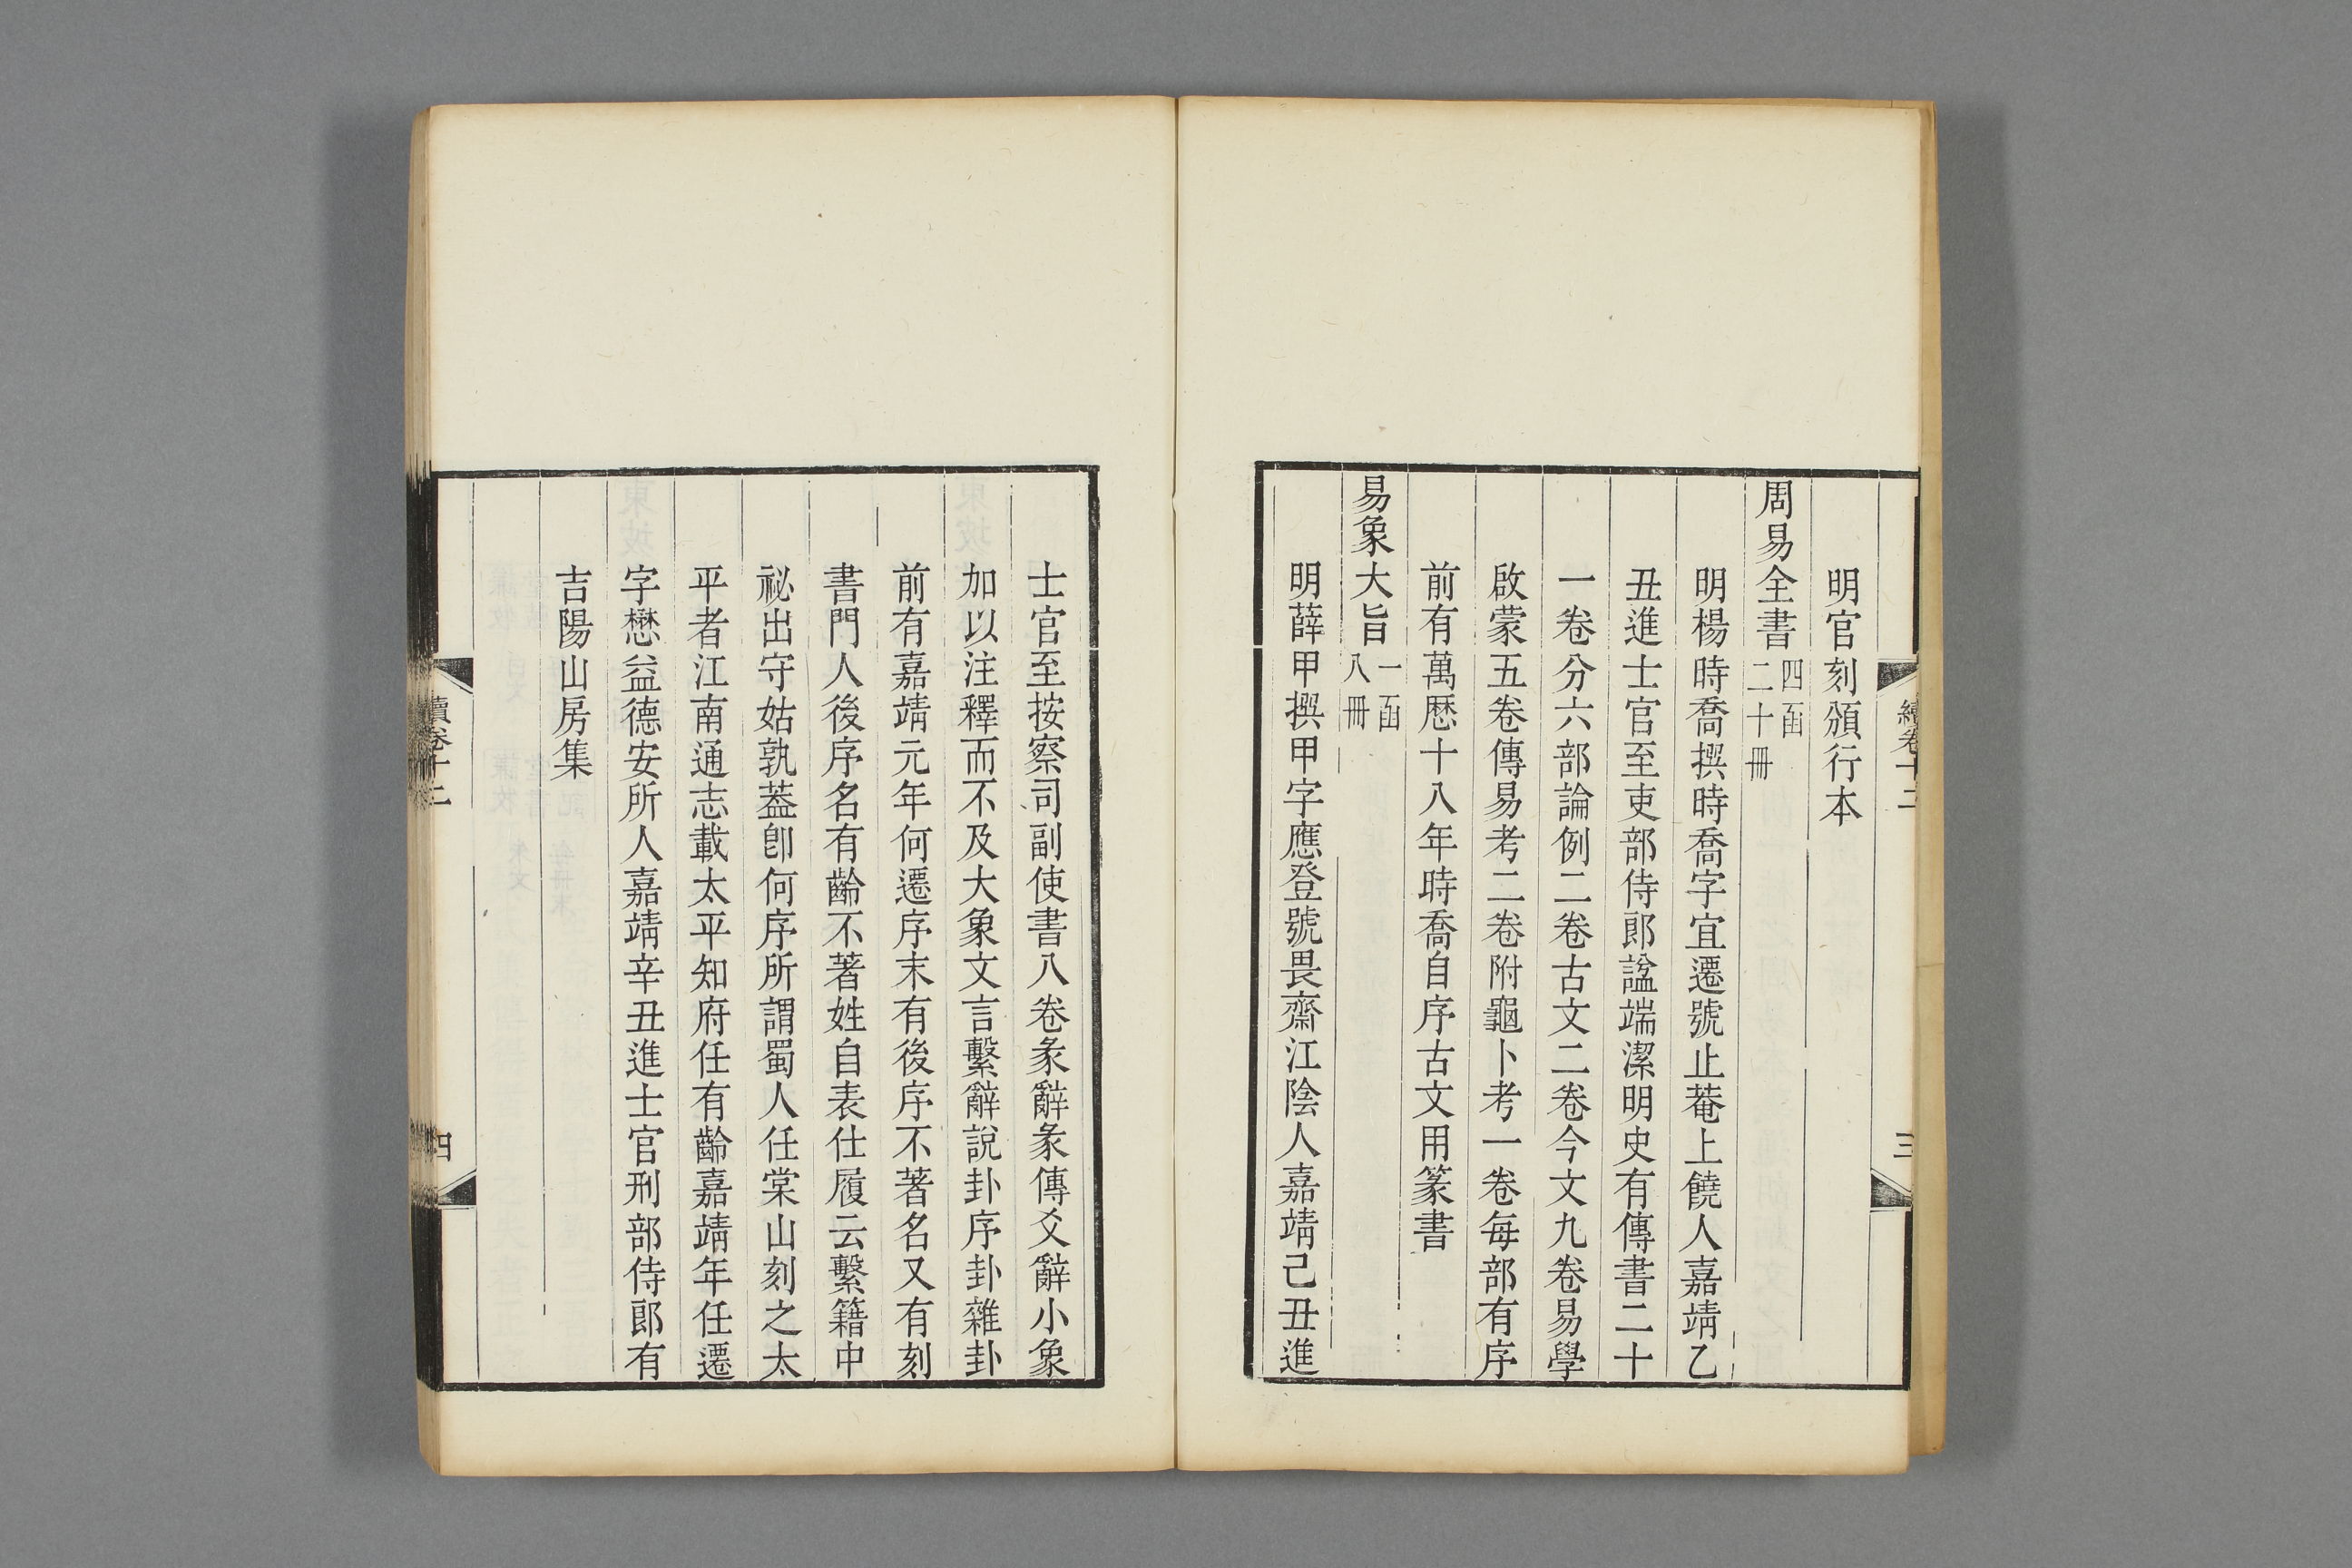 續卷十二
三
明官刻頒行本
周易全書 四函 二十冊
明楊時喬撰時喬字宜遷號止菴上饒人嘉靖乙
丑進士官至吏部侍郎諡端潔明史有傳書二十
一卷分六部論例二卷古文二卷今文九卷易學
啟蒙五卷傳易考二卷附龜卜考一卷每部有序
前有萬厯十八年時喬自序古文用篆書
易象大旨 一函 八冊
明薛甲撰甲字應登號畏齋江陰人嘉靖己丑進
士官至按察司副使書八卷彖辭彖傳爻辭小象
加以注釋而不及大象文言繫辭說卦序卦雜卦
前有嘉靖元年何遷序末有後序不著名又有刻
書門人後序名有齡不著姓自表仕履云繫籍中
祕出守姑孰葢卽何序所謂蜀人任棠山刻之太
平者江南通志載太平知府任有齡嘉靖年任遷
字懋益德安所人嘉靖辛丑進士官刑部侍郎有
吉陽山房集
續卷十二
四